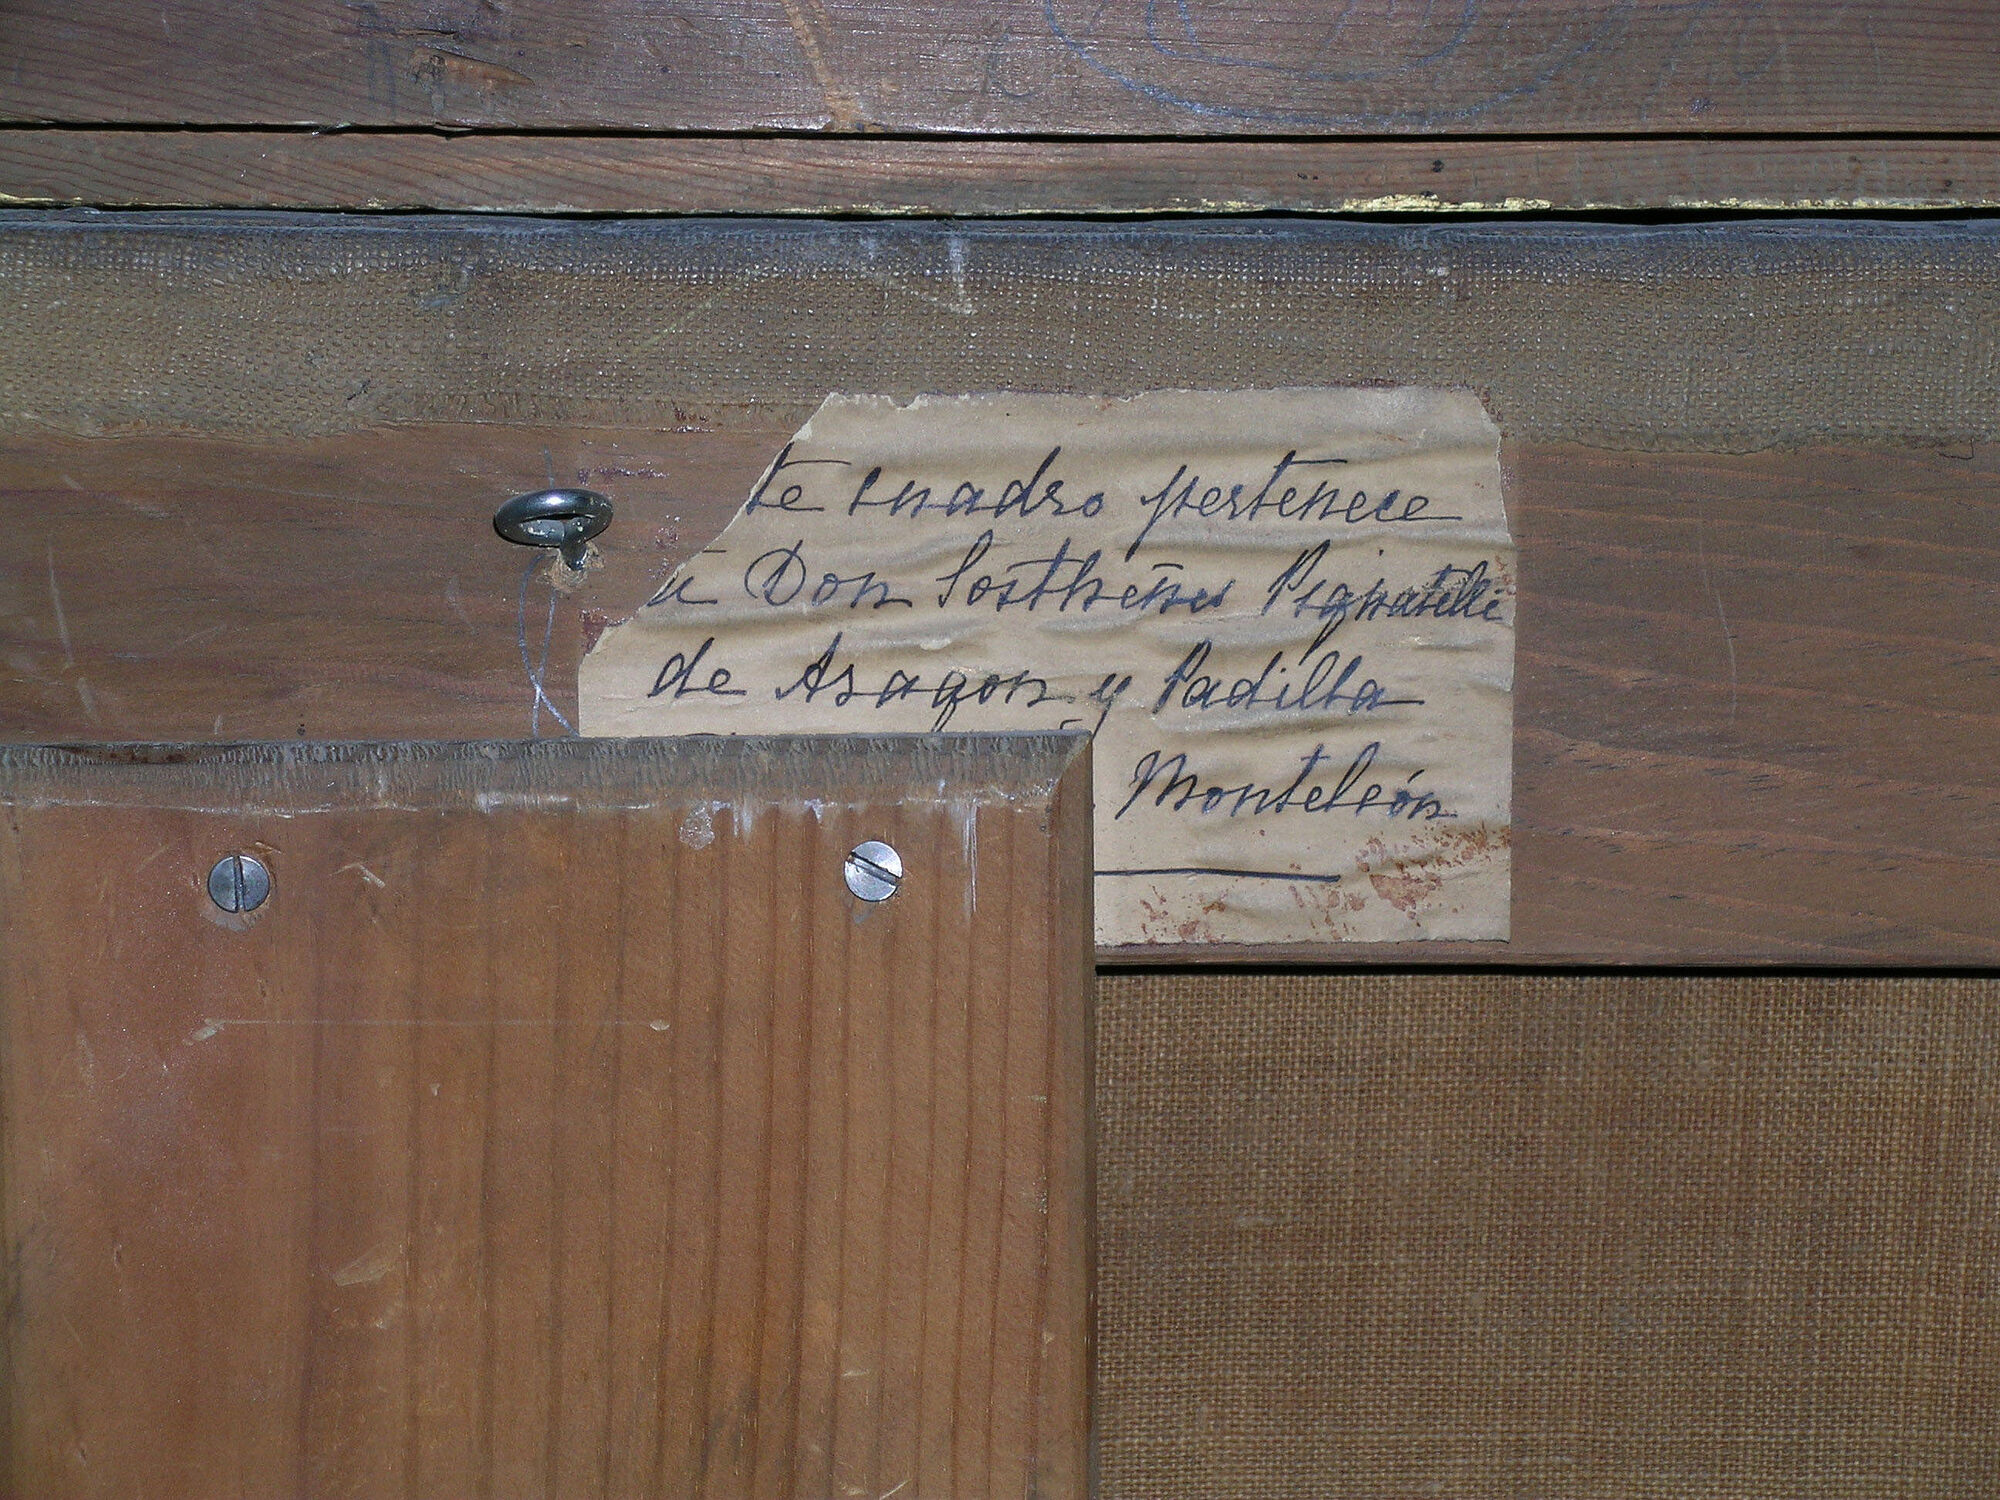 te cuadro pertenece
á Don Sosthenes Pignatelli
de Aragon y Padilla
Monteleón